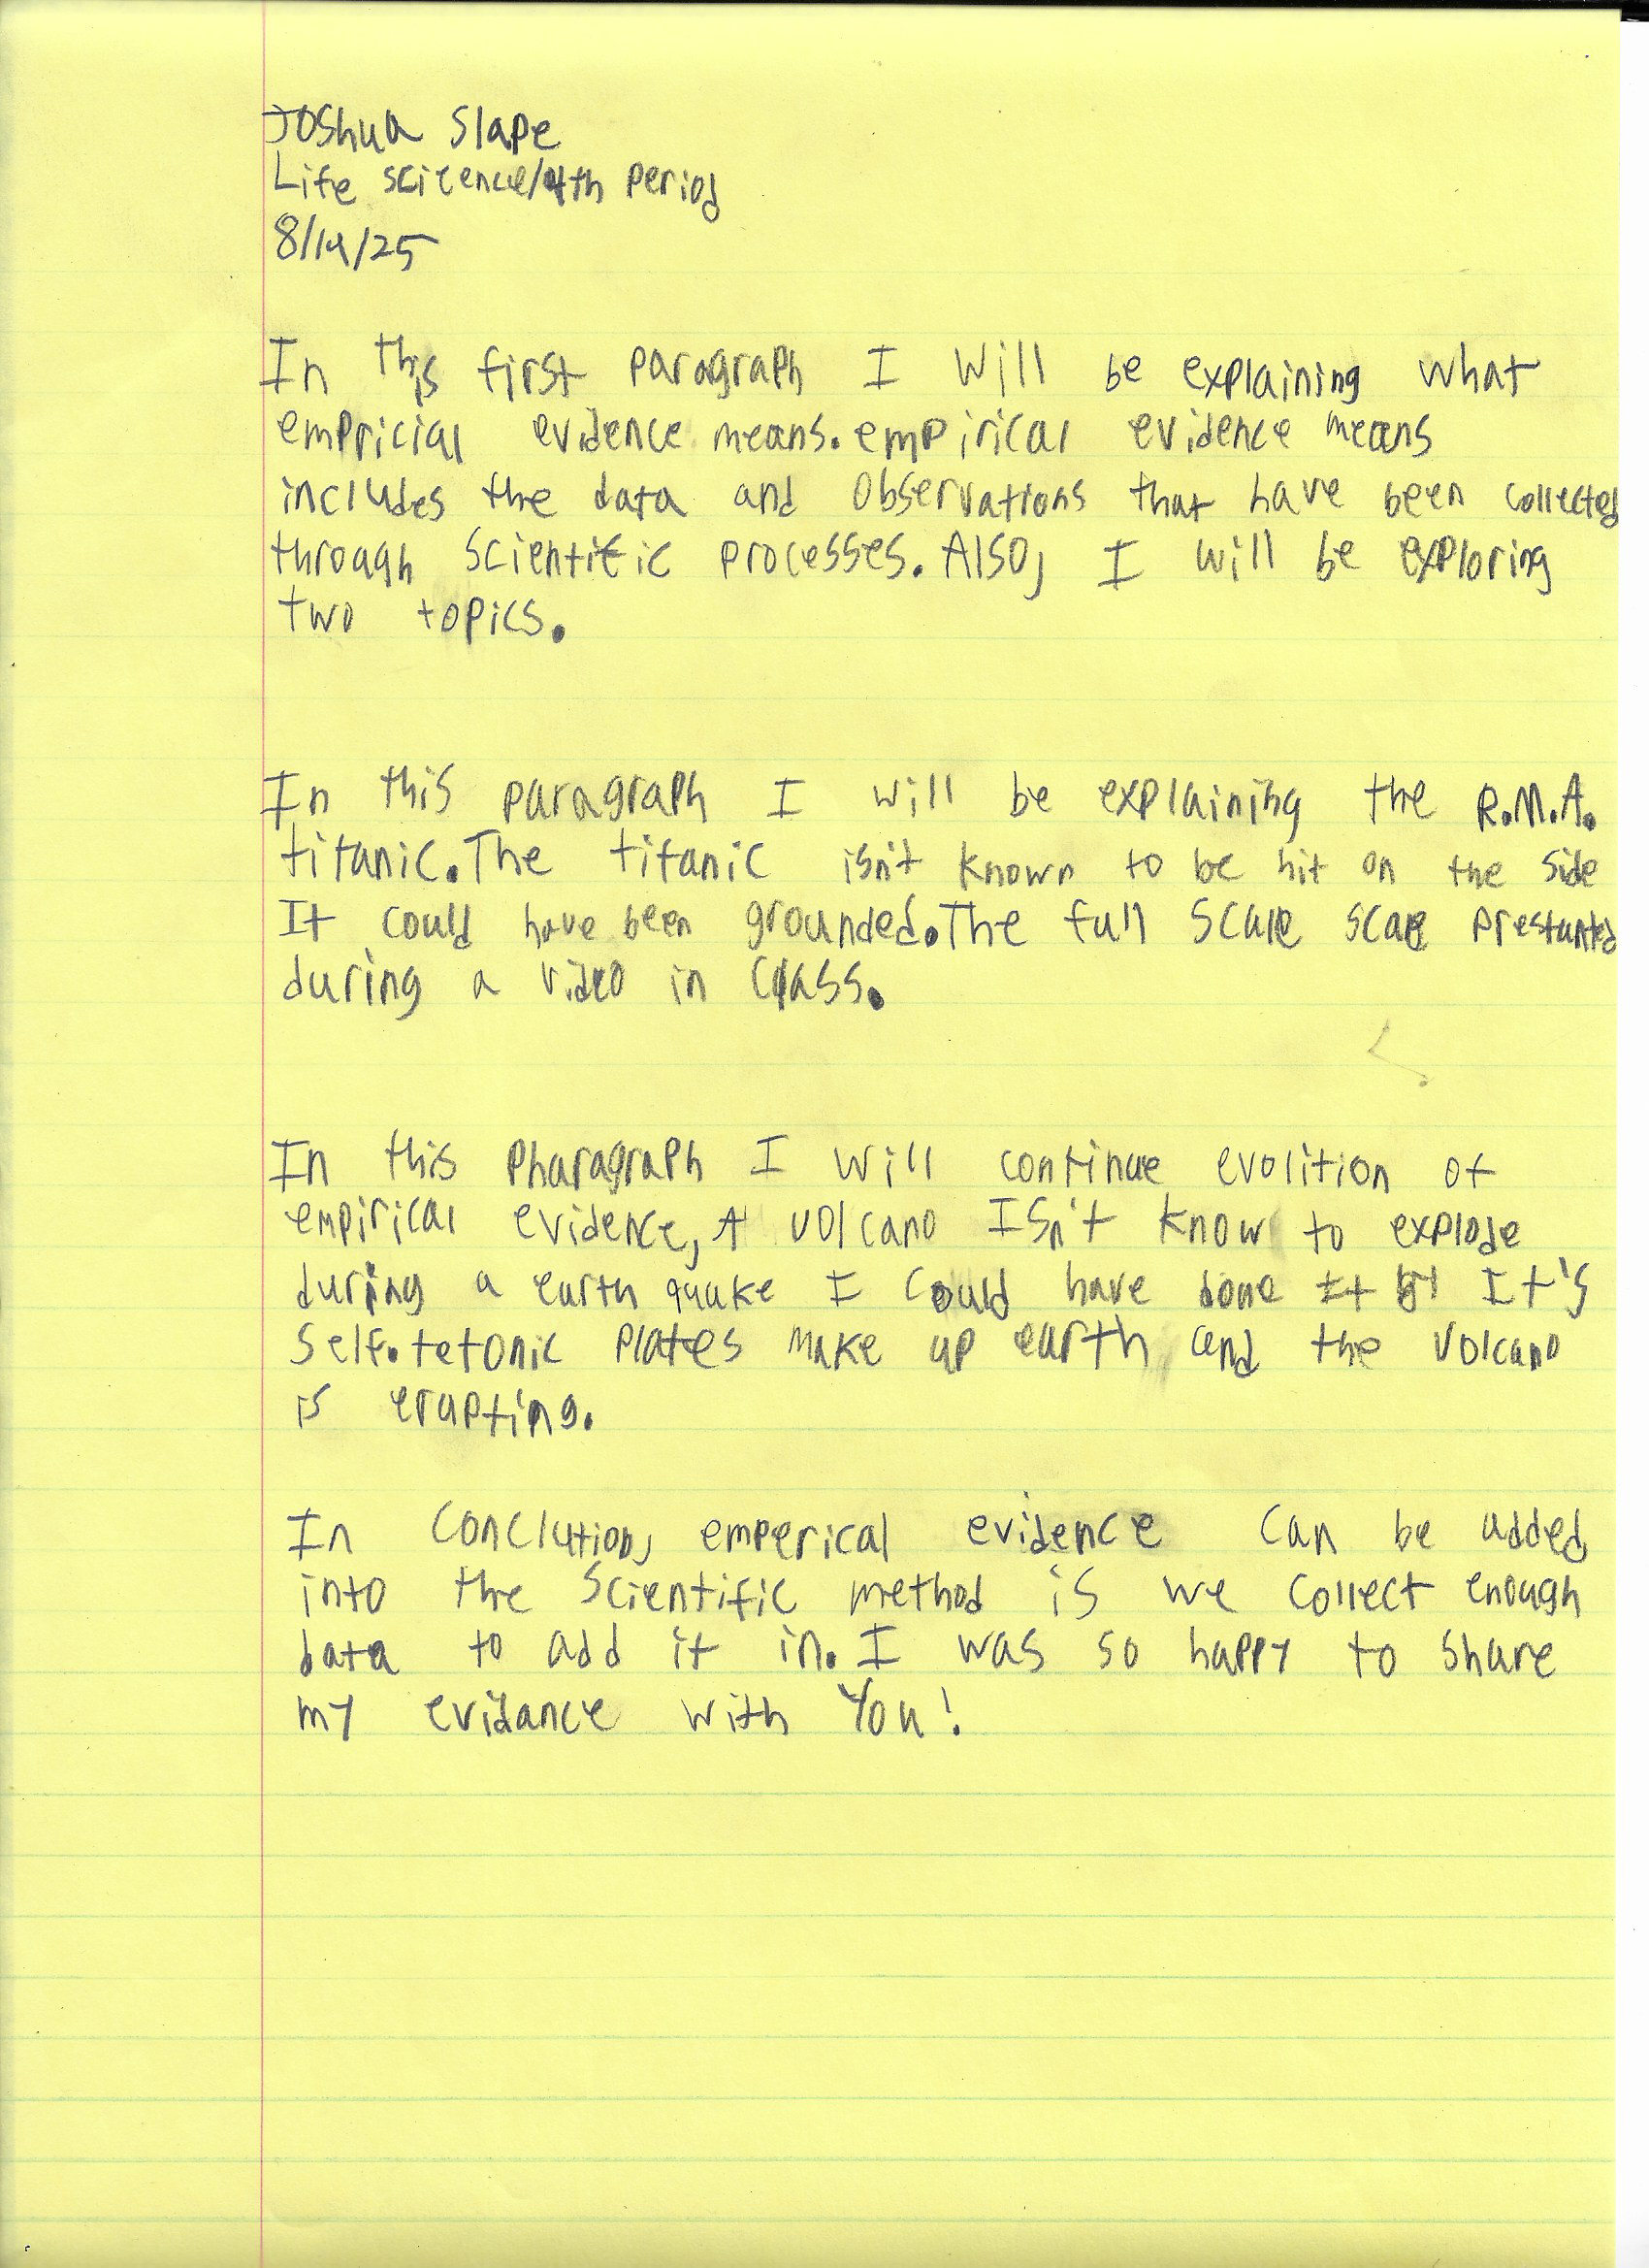 Joshua Slape
Life scicence/4th Period
8/14/25
In this first paragraph I will be explaining what
empricial evidence means. empirical evidence means
includes the data and observations that have been collected
through scientific processes. Also, I will be exploring
two topics.
In this paragraph I will be explaining the R.M.A.
titanic. The titanic isn't known to be hit on the side
It could have been grounded. The full scale scale prestanted
during a video in class.
In this Pharagraph I will continue evolition of
empirical evidence, A volcano Isn't know to explode
during a earth quake I could have done It by It's
self. tetonic plates make up earth and the volcano
is erupting.
In conclution, emperical evidence can be added
into the scientific method is we collect enough
data to add it in. I was so happy to share
my evidance with You!